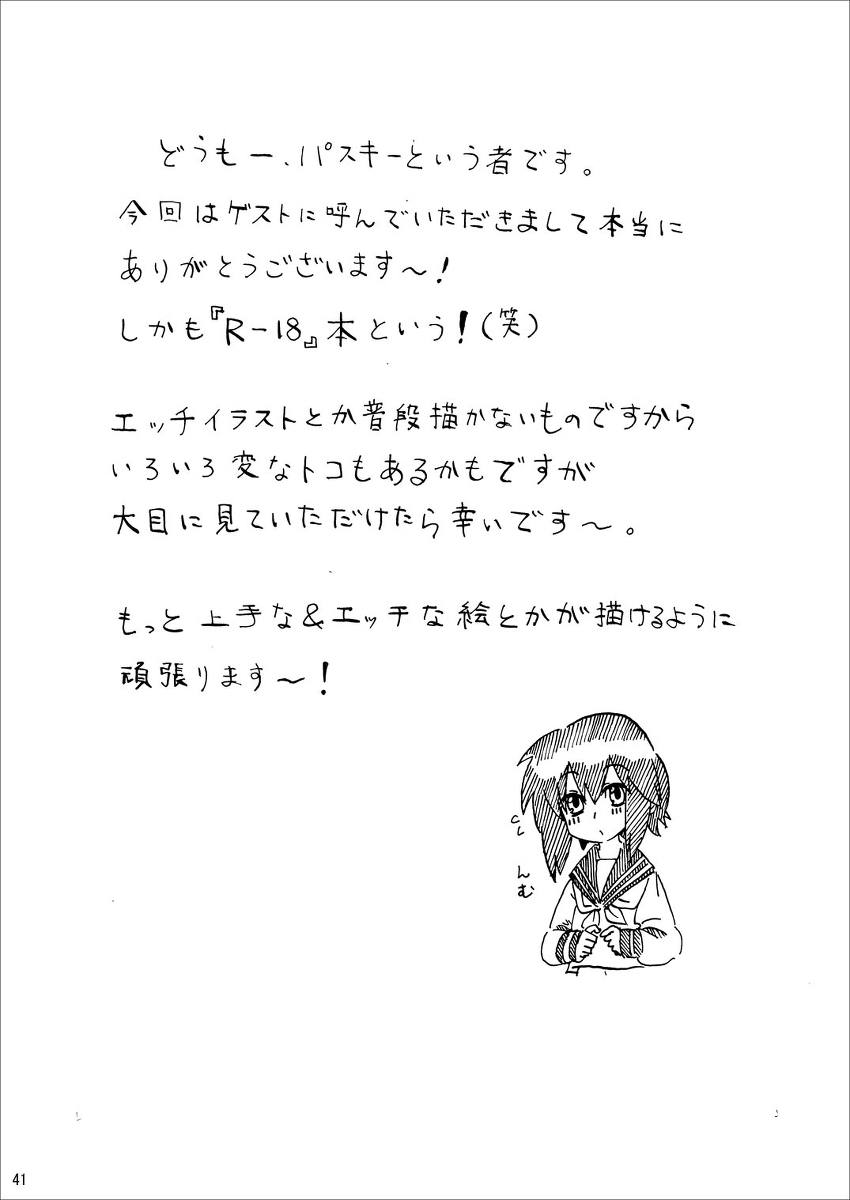 どうもー、パスキーという者です。
今回はゲストに呼んでいただきまして本当に
ありがとうございます〜！
しかも『R-18』本という！(笑)
エッチイラストとか普段描かないものですから
いろいろ変なトコもあるかもですが
大目に見ていただけたら幸いです〜。
もっと上手な＆エッチな絵とかが描けるように
頑張ります〜！
んむ
41